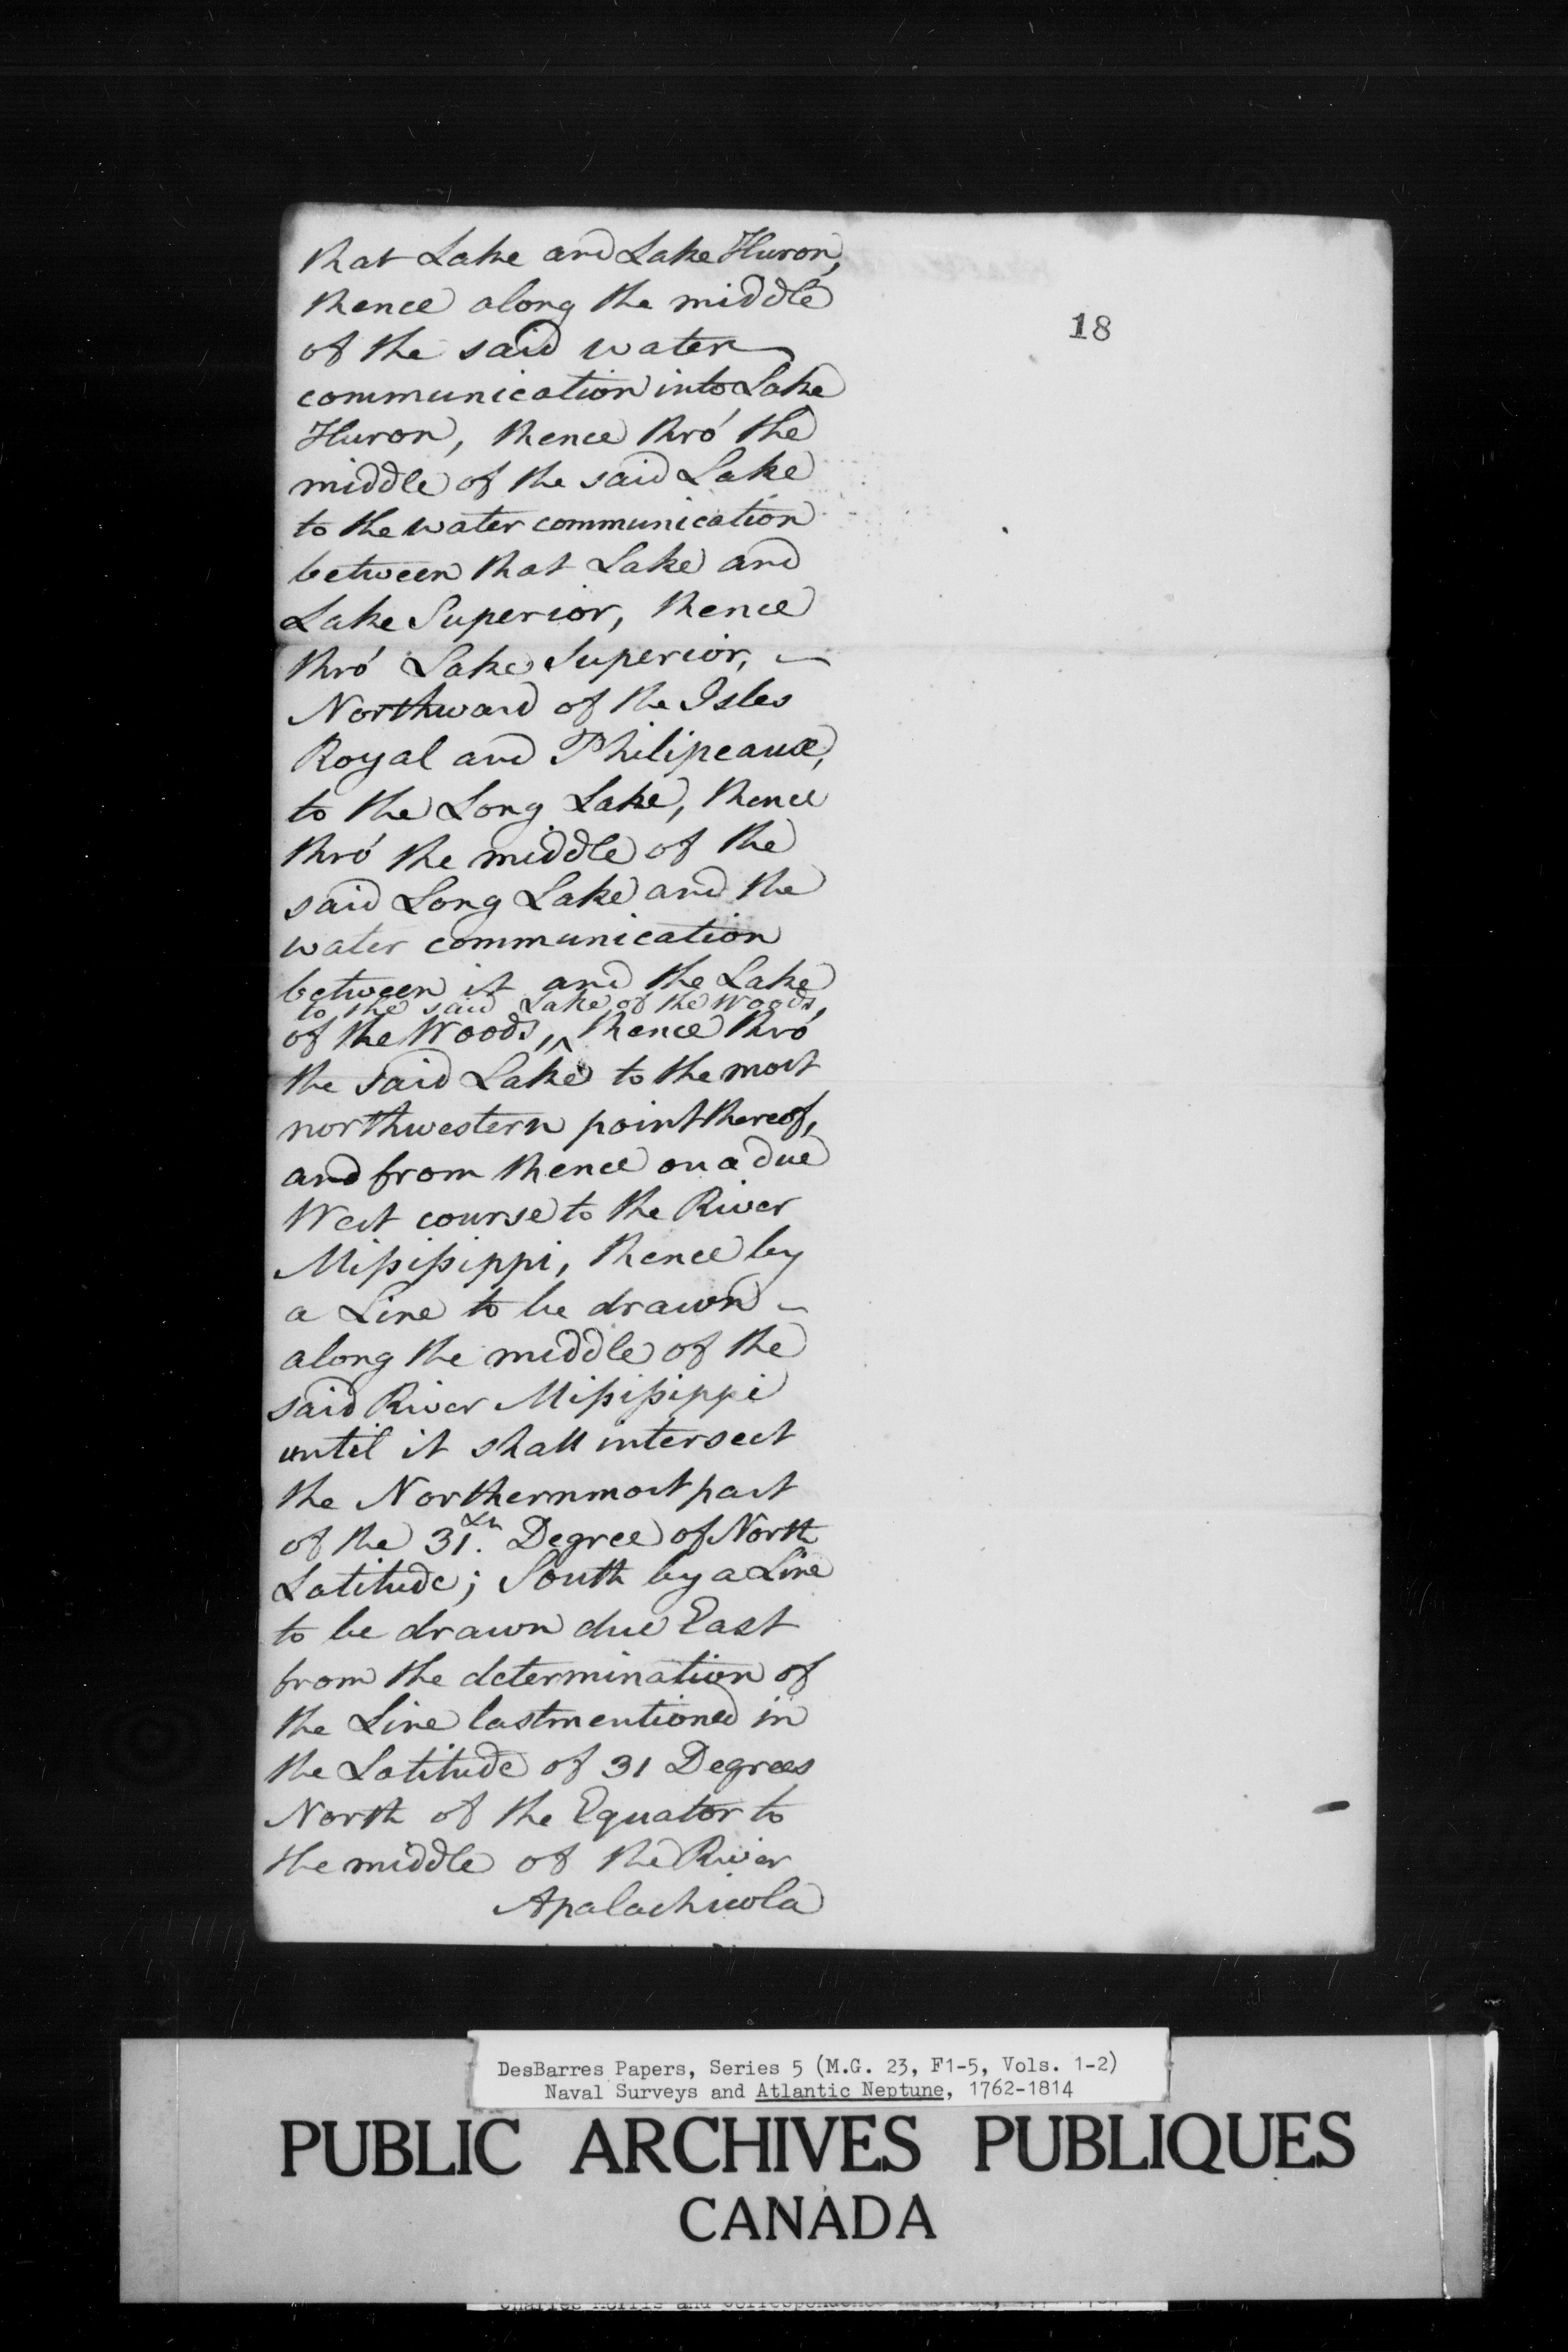 that Lake and Lake Huron,
thence along the middle
18
of the said water
communication into Lake
Huron, thence thró the
middle of the said Lake
to the water communication
between that Lake and
Lake Superior, thence
thró Lake Superior, –
Northward of the Isles
Royal and Philipeaux,
to the Long Lake, thence
thró the middle of the
said Long Lake and the
water communication
between it and the Lake
to the said Lake of the Woods,
of the Woods, ^ thence thró
the said Lake to the most
northwestern point thereof,
and from thence on a due
West course to the River
Missisippi, thence by
a Line to be drawn –
along the middle of the
said River Missisippi
until it shall intersect
the Northernmost part
of the 31.th Degree of North
Latitude; South by a Line
to be drawn due East
from the determination of
the Line lastmentioned in
the Latitude of 31 Degrees
North of the Equator to
the middle of the River
Apalachicola
DesBarres Papers, Series 5 (M.G. 23, F1-5, Vols. 1-2)
Naval Surveys and Atlantic Neptune, 1762-1814
PUBLIC ARCHIVES PUBLIQUES
CANADA